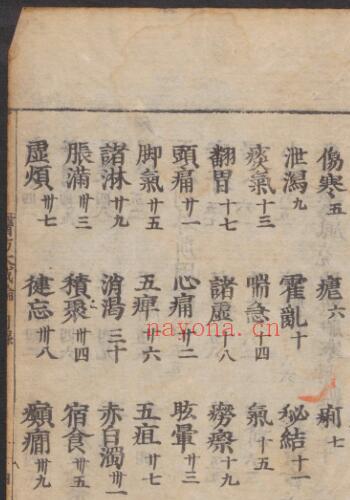 傷寒五 瘧六 痢七
泄瀉九 霍亂十 秘結十一
痰氣十三 喘急十四 氣十五
翻胃十七 諸虛十八 癆瘵十九
頭痛廿一 心痛廿二 眩暈廿三
脚氣廿五 五痺廿六 五疸廿七
諸淋廿九 消渴三十 赤白濁卅一
脹滿卅三 積聚卅四 宿食卅五
虛煩卅七 健忘卅八 癲癇卅九
nayona.cn